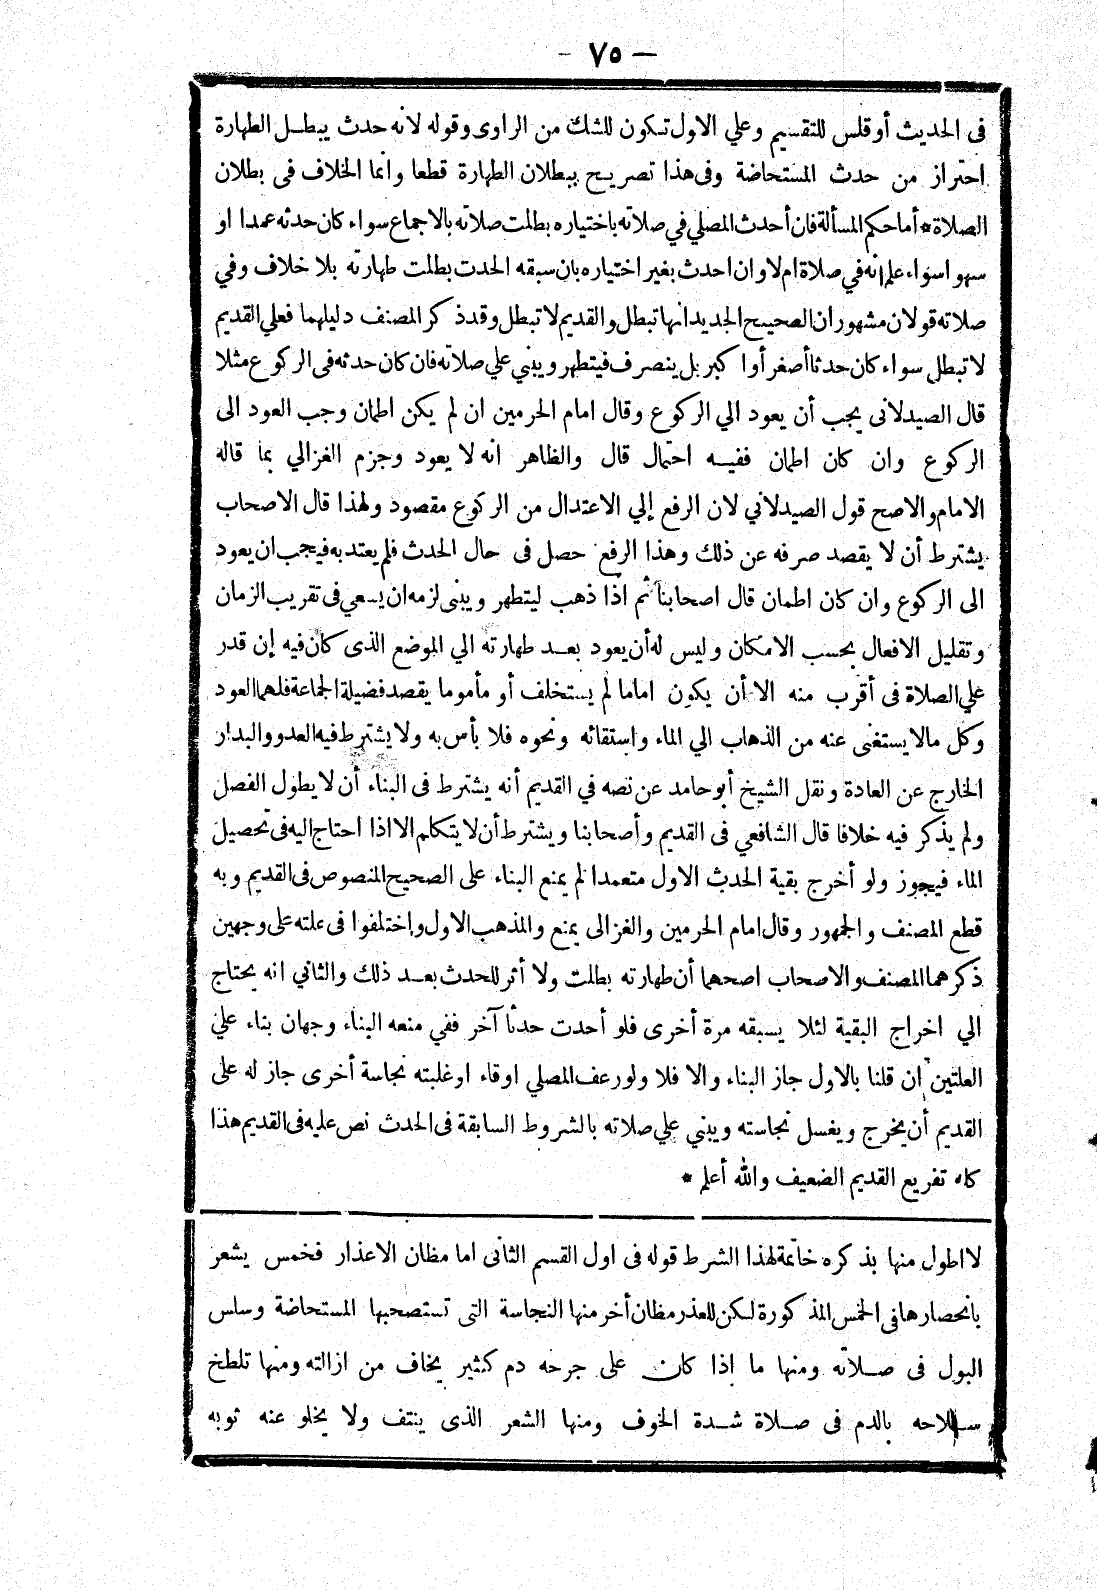 — ٧٥ —
فى الحديث أو قلس للتقسيم وعلي الاول تكون للشك من الراوى وقوله لانه حدث يبطل الطهارة
احتراز من حدث المستحاضة وفى هذا تصريح ببطلان الطهارة قطعا وانما الخلاف فى بطلان
الصلاة * أما حكم المسألة فان أحدث المصلي في صلاته باختياره بطلت صلاته بالاجماع سواء كان حدثه عمدا او
سهوا سواء علم انه في صلاة ام لا وان احدث بغير اختياره بان سبقه الحدث بطلت طهارته بلا خلاف وفي
صلاته قولان مشهوران الصحيح الجديد انها تبطل والقديم لا تبطل وقد ذكر المصنف دليلهما فعلي القديم
لا تبطل سواء كان حدثا أصغر أو اكبر بل ينصرف فيتطهر ويبني علي صلاته فان كان حدثه فى الركوع مثلا
قال الصيدلانى يجب أن يعود الي الركوع وقال امام الحرمين ان لم يكن اطمان وجب العود الى
الركوع وان كان اطمان ففيه احتمال قال والظاهر انه لا يعود وجزم الغزالي بما قاله
الامام والاصح قول الصيدلاني لان الرفع إلي الاعتدال من الركوع مقصود ولهذا قال الاصحاب
يشترط أن لا يقصد صرفه عن ذلك وهذا الرفع حصل فى حال الحدث فلم يعتد به فيجب ان يعود
الى الركوع وان كان اطمان قال اصحابنا ثم اذا ذهب ليتطهر ويبنى لزمه ان يسعي فى تقريب الزمان
وتقليل الافعال بحسب الامكان وليس له أن يعود بعد طهارته الي الموضع الذى كان فيه إن قدر
علي الصلاة فى أقرب منه الا أن يكون اماما لم يستخلف أو مأموما يقصد فضيلة الجماعة فلهما العود
وكل مالا يستغنى عنه من الذهاب الي الماء واستقائه ونحوه فلا بأس به ولا يشترط فيه العدو والبدار
الخارج عن العادة ونقل الشيخ أبو حامد عن نصه في القديم أنه يشترط فى البناء أن لا يطول الفصل
ولم يذكر فيه خلافا قال الشافعي فى القديم وأصحابنا ويشترط أن لا يتكلم الا اذا احتاج اليه فى تحصيل
الماء فيجوز ولو أخرج بقية الحدث الاول متعمدا لم يمنع البناء على الصحيح المنصوص فى القديم وبه
قطع المصنف والجمهور وقال امام الحرمين والغزالى يمنع والمذهب الاول واختلفوا فى علته على وجهين
ذكرهما المصنف والاصحاب اصحهما أن طهارته بطلت ولا أثر للحدث بعد ذلك والثاني انه يحتاج
الي اخراج البقية لئلا يسبقه مرة أخرى فلو أحدث حدثا آخر ففي منعه البناء وجهان بناء علي
العلتين ان قلنا بالاول جاز البناء والا فلا ولو رعف المصلي او قاء او غلبته نجاسة أخرى جاز له على
القديم أن يخرج ويغسل نجاسته ويبني علي صلاته بالشروط السابقة فى الحدث نص عليه فى القديم هذا
كله تفريع القديم الضعيف والله أعلم *
لا اطول منها بذكره خاتمة لهذا الشرط قوله فى اول القسم الثانى اما مظان الاعذار فخمس يشعر
بانحصارها فى الخمس المذكورة لكن للعذر مظان أخر منها النجاسة التى تستصحبها المستحاضة وسلس
البول فى صلاته ومنها ما إذا كان على جرحه دم كثير يخاف من ازالته ومنها تلطخ
سلاحه بالدم فى صلاة شدة الخوف ومنها الشعر الذى ينتف ولا يخلو عنه ثوبه